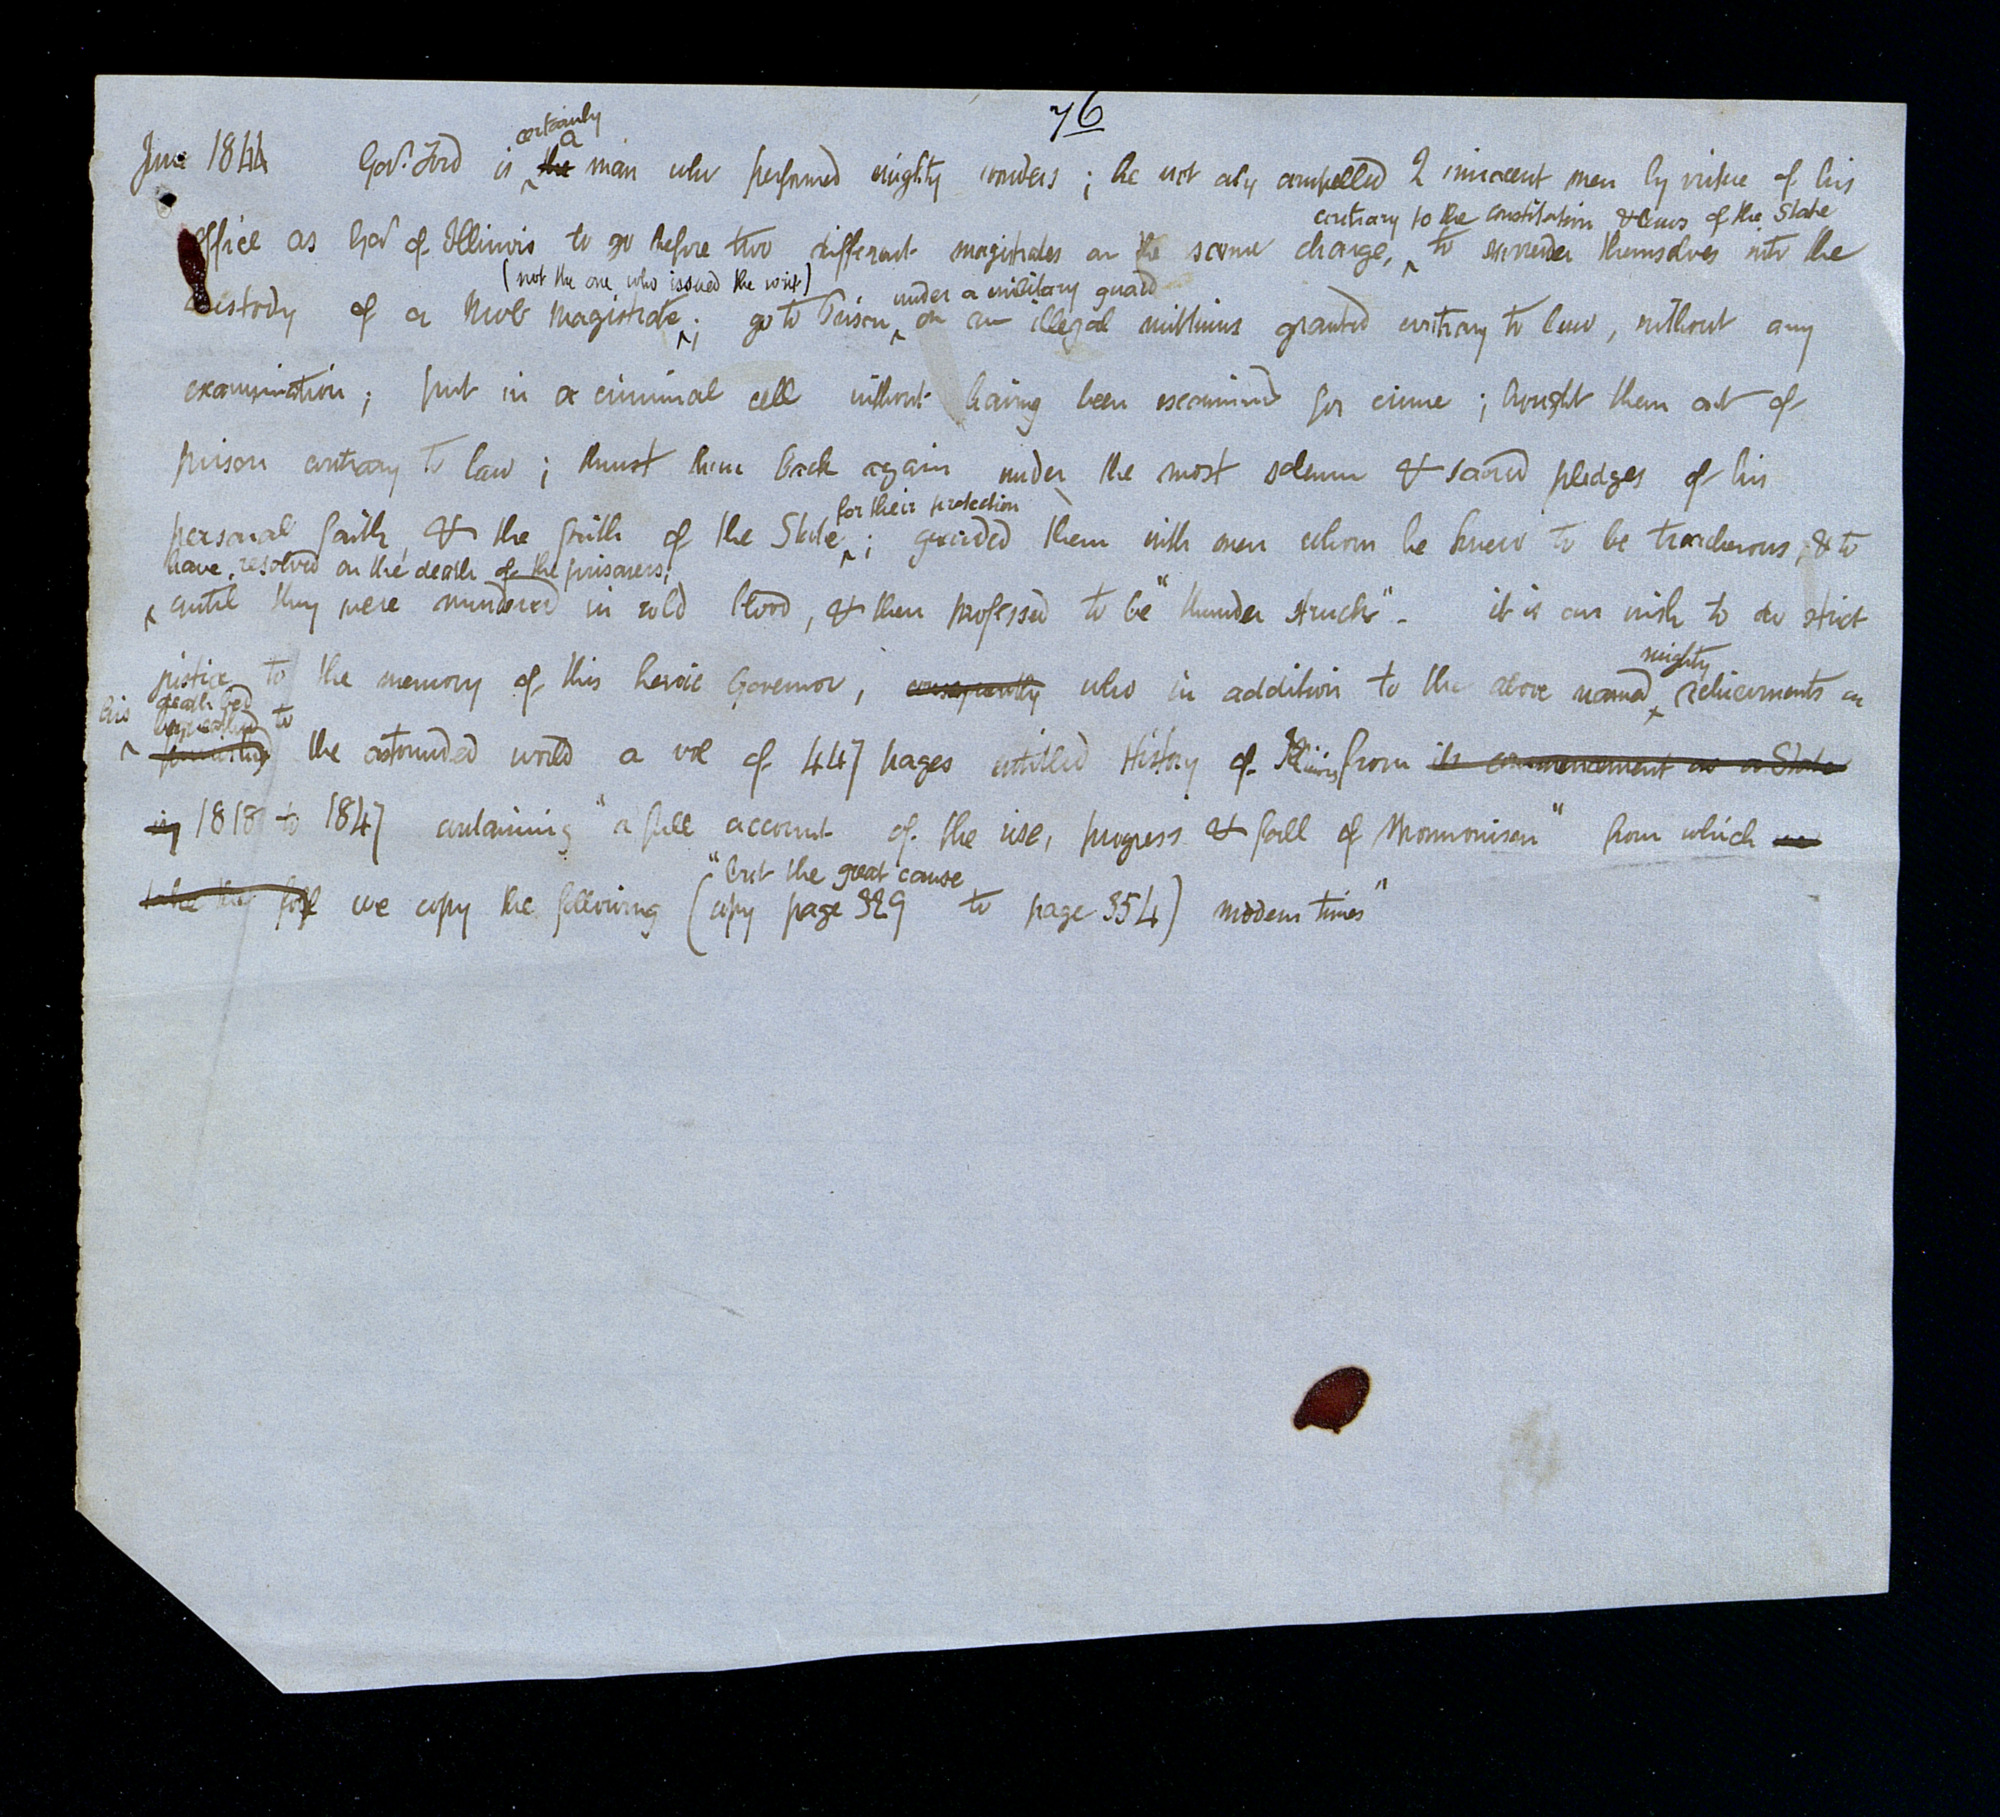 76
certainly
a
June 1844 Gov. Ford is ^ the man who performed mighty wonders; he not only compelled 2 innocent men by virtue of his
contrary to the constitution & laws of the State
office as Gov of Illinois to go before two different magistrates on the same charge, ^ to surrender themselves into the
(not the one who issued the writ) under a military guard
custody of a Mob Magistrate ^; go to Prison ^ on an illegal mittimus granted contrary to law, without any
examination; put in a criminal cell without having been examined for crime; brought them out of
prison contrary to law; thrust them back again under the most solemn & sacred pledges of his
for their protection
personal faith, & the faith of the State ^; guarded them with men whom he knew to be treacherous, & to
have resolved on the death of the prisoners;
^ until they were murdered in cold blood, & then professed to be "thunder struck" - it is our wish to do strict
mighty
justice to the memory of this heroic Governor, consequently who in addition to the above named ^ achievements on
his death bed
bequeathed to
^ the astounded world a vol of 447 pages entitled History of Illinois from its commencement as a State
in 1818 to 1847 containing "a full account of the rise, progress & fall of Mormonism" from which we
"but the great cause
take the foll we copy the following (copy page 329 to page 354) modern times"